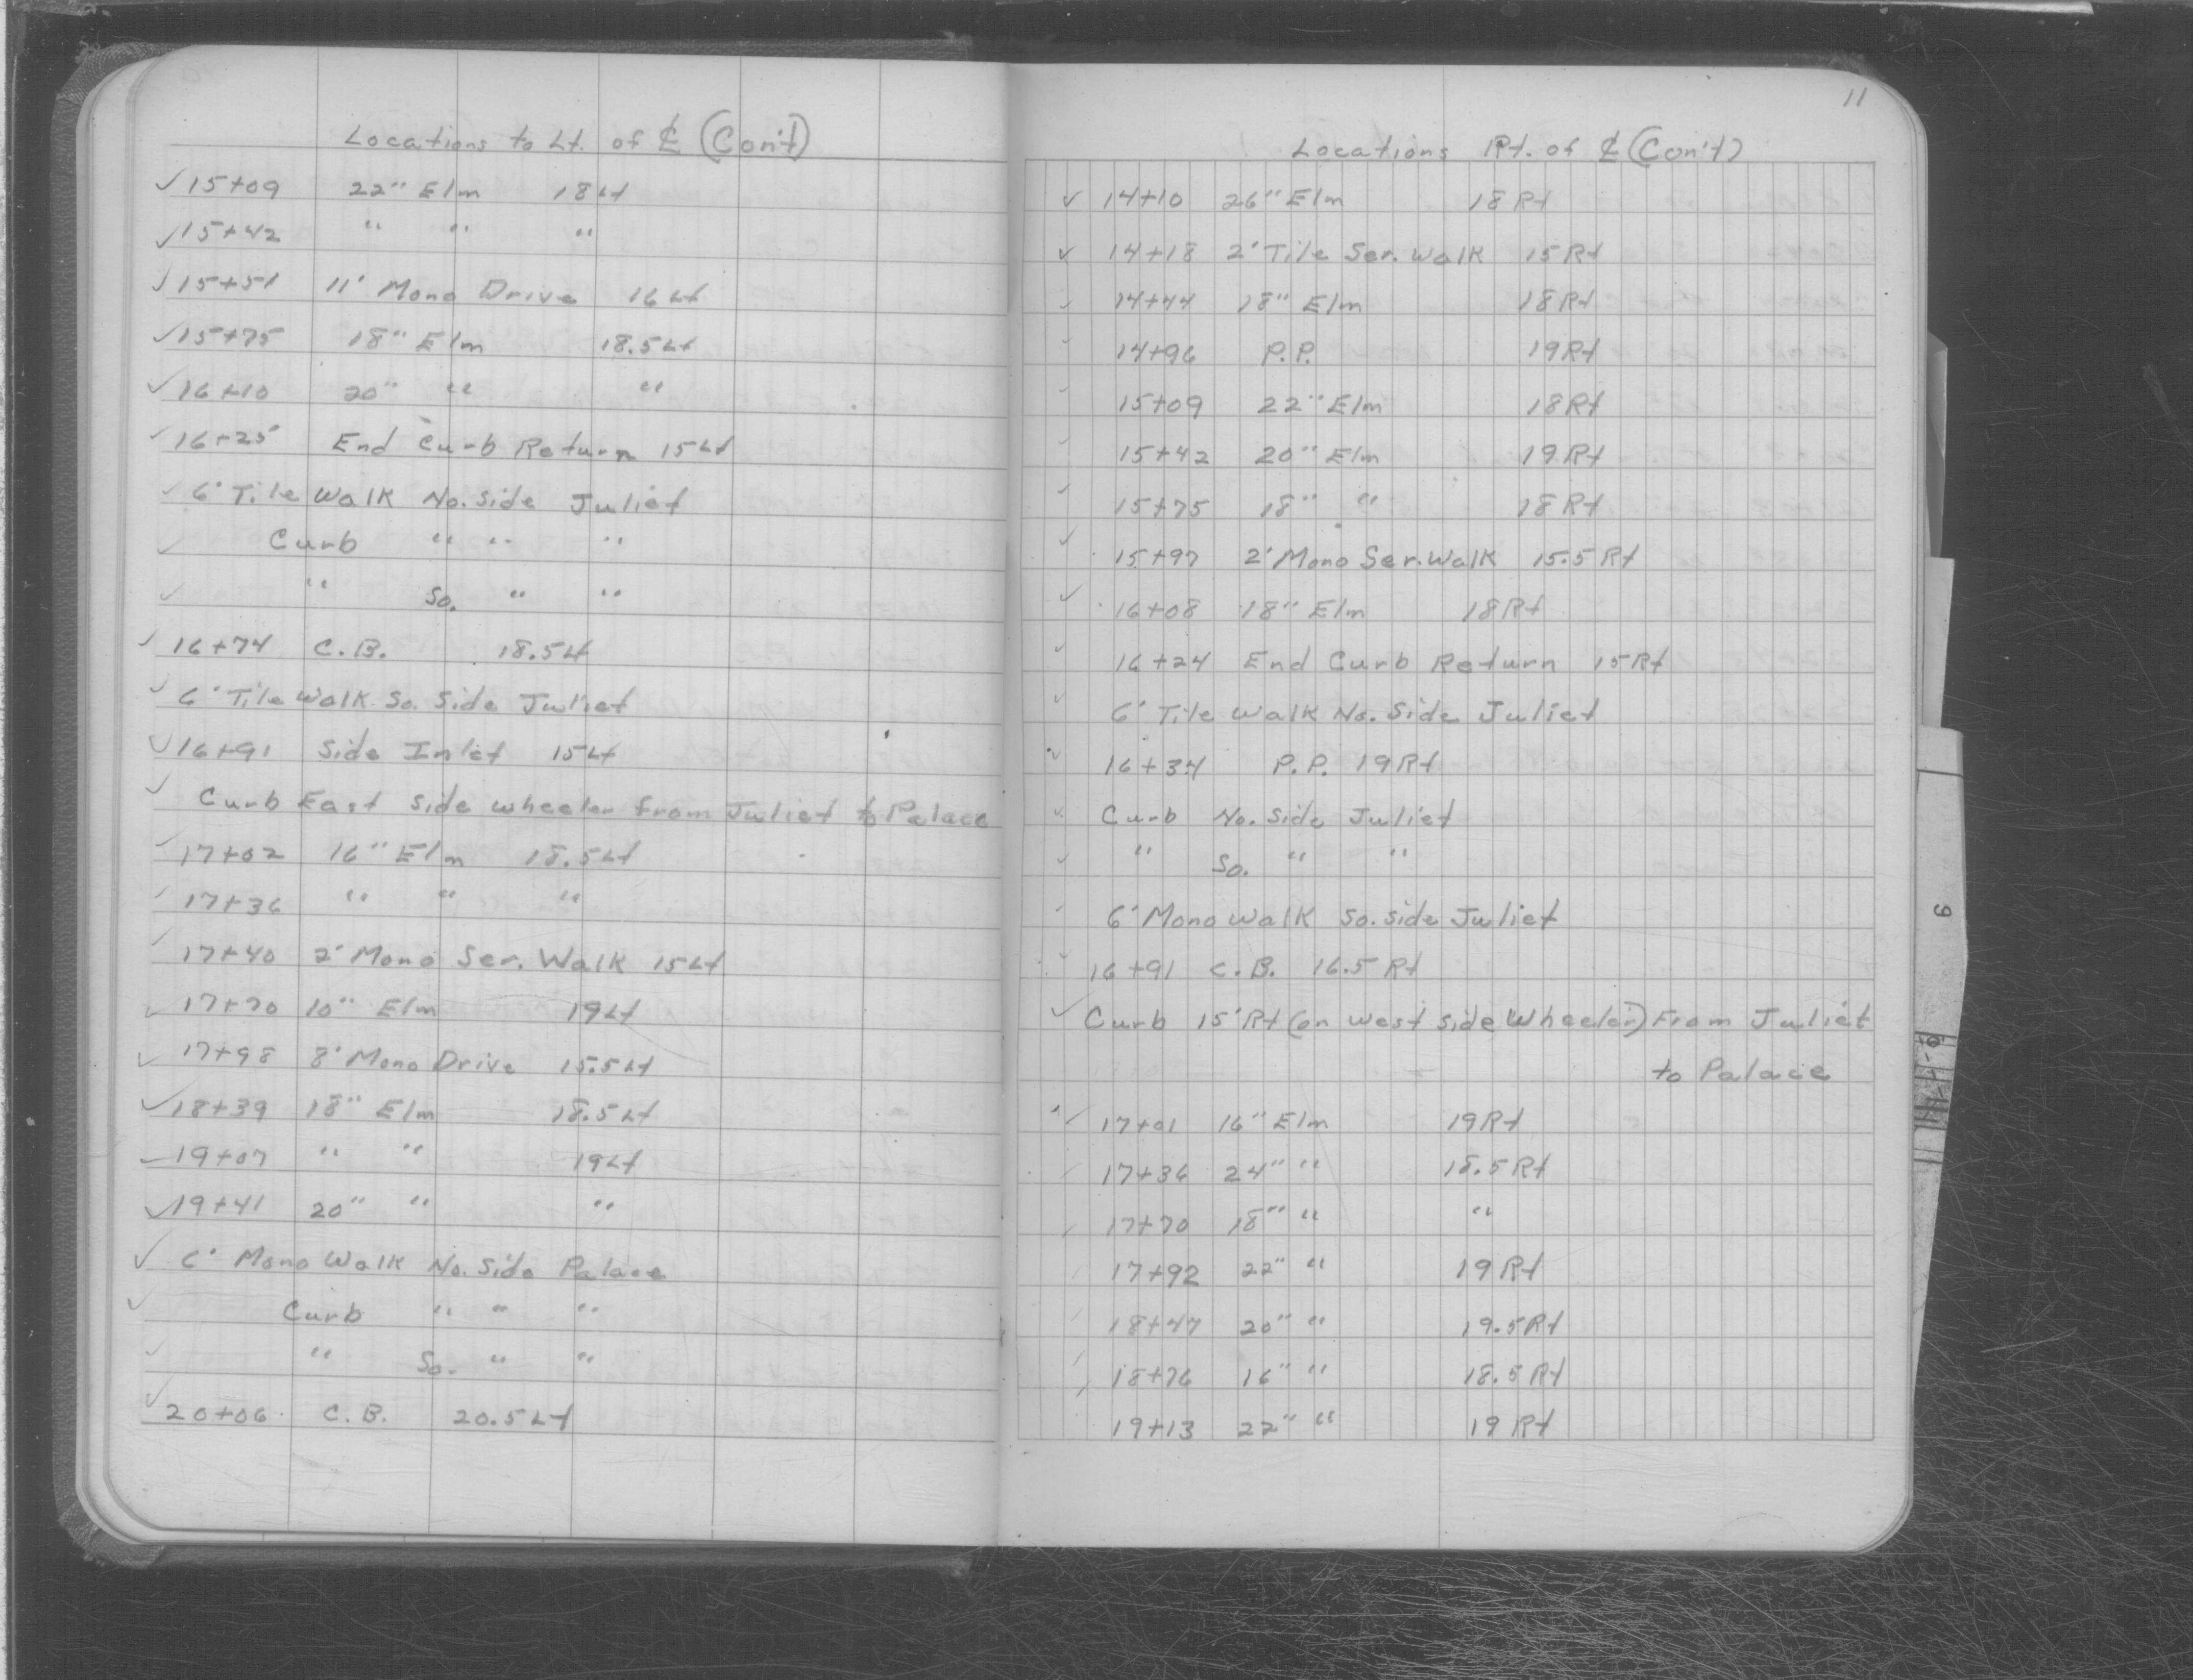 Locations to Lt. of ℄ (Con't)
✓ 15+09 22" Elm 18 Lt
✓ 15+42 " " "
✓ 15+51 11' Mono Drive 16 Lt
✓ 15+75 18" Elm 18.5 Lt
✓ 16+10 20" " "
✓ 16+25 End Curb Return 15 Lt
✓ 6' Tile Walk No. Side Juliet
✓ Curb " " "
✓ " So. " "
✓ 16+74 C.B. 18.5 Lt
✓ 6' Tile Walk So. Side Juliet
✓ 16+91 Side Inlet 15 Lt
✓ Curb East Side Wheeler from Juliet to Palace
✓ 17+02 16" Elm 18.5 Lt
✓ 17+36 " " "
✓ 17+40 2' Mono Ser. Walk 15 Lt
✓ 17+70 10" Elm 19 Lt
✓ 17+98 8' Mono Drive 15.5 Lt
✓ 18+39 18" Elm 18.5 Lt
✓ 19+07 " " 19 Lt
✓ 19+41 20" " "
✓ 6' Mono Walk No. Side Palace
✓ Curb " " "
✓ " So. " "
✓ 20+06 C.B. 20.5 Lt
11
Locations Rt. of ℄ (Con't)
✓ 14+10 26" Elm 18 Rt
✓ 14+18 2' Tile Ser. Walk 15 Rt
✓ 14+44 18" Elm 18 Rt
✓ 14+96 P.P. 19 Rt
✓ 15+09 22" Elm 18 Rt
✓ 15+42 20" Elm 19 Rt
✓ 15+75 18" " 18 Rt
✓ 15+97 2' Mono Ser. Walk 15.5 Rt
✓ 16+08 18" Elm 18 Rt
✓ 16+24 End Curb Return 15 Rt
✓ 6' Tile Walk No. Side Juliet
✓ 16+34 P.P. 19 Rt
✓ Curb No. Side Juliet
✓ " So. " "
✓ 6' Mono Walk So. Side Juliet
✓ 16+91 C.B. 16.5 Rt
✓ Curb 15' Rt (on West Side Wheeler) From Juliet
to Palace
✓ 17+01 16" Elm 19 Rt
✓ 17+36 24" " 18.5 Rt
✓ 17+70 18" " "
✓ 17+92 22" " 19 Rt
✓ 18+47 20" " 19.5 Rt
✓ 18+76 16" " 18.5 Rt
✓ 19+13 22" " 19 Rt